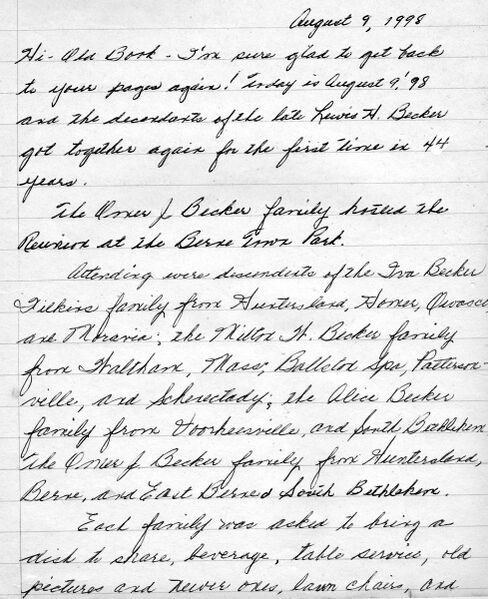 August 9, 1998
Hi - Old Book - I'm sure glad to get back
to your pages again! Today is August 9, '98
and the decendants of the late Lewis H. Becker
got together again for the first time in 44
years.
The Omer J. Becker family hosted the
Reunion at the Berne Town Park.
Attending were descendents of the Iva Becker
Filkins family from Huntersland, Homer, Owasco
and Moravia; the Milton H. Becker family
from Waltham, Mass; Ballston Spa, Patterson-
ville, and Schenectady; the Alice Becker
family from Voorheesville, and South Bethlehem
The Omer J. Becker family from Huntersland,
Berne, and East Berne & South Bethlehem.
Each family was asked to bring a
dish to share, beverage, table service, old
pictures and newer ones, lawn chairs, and